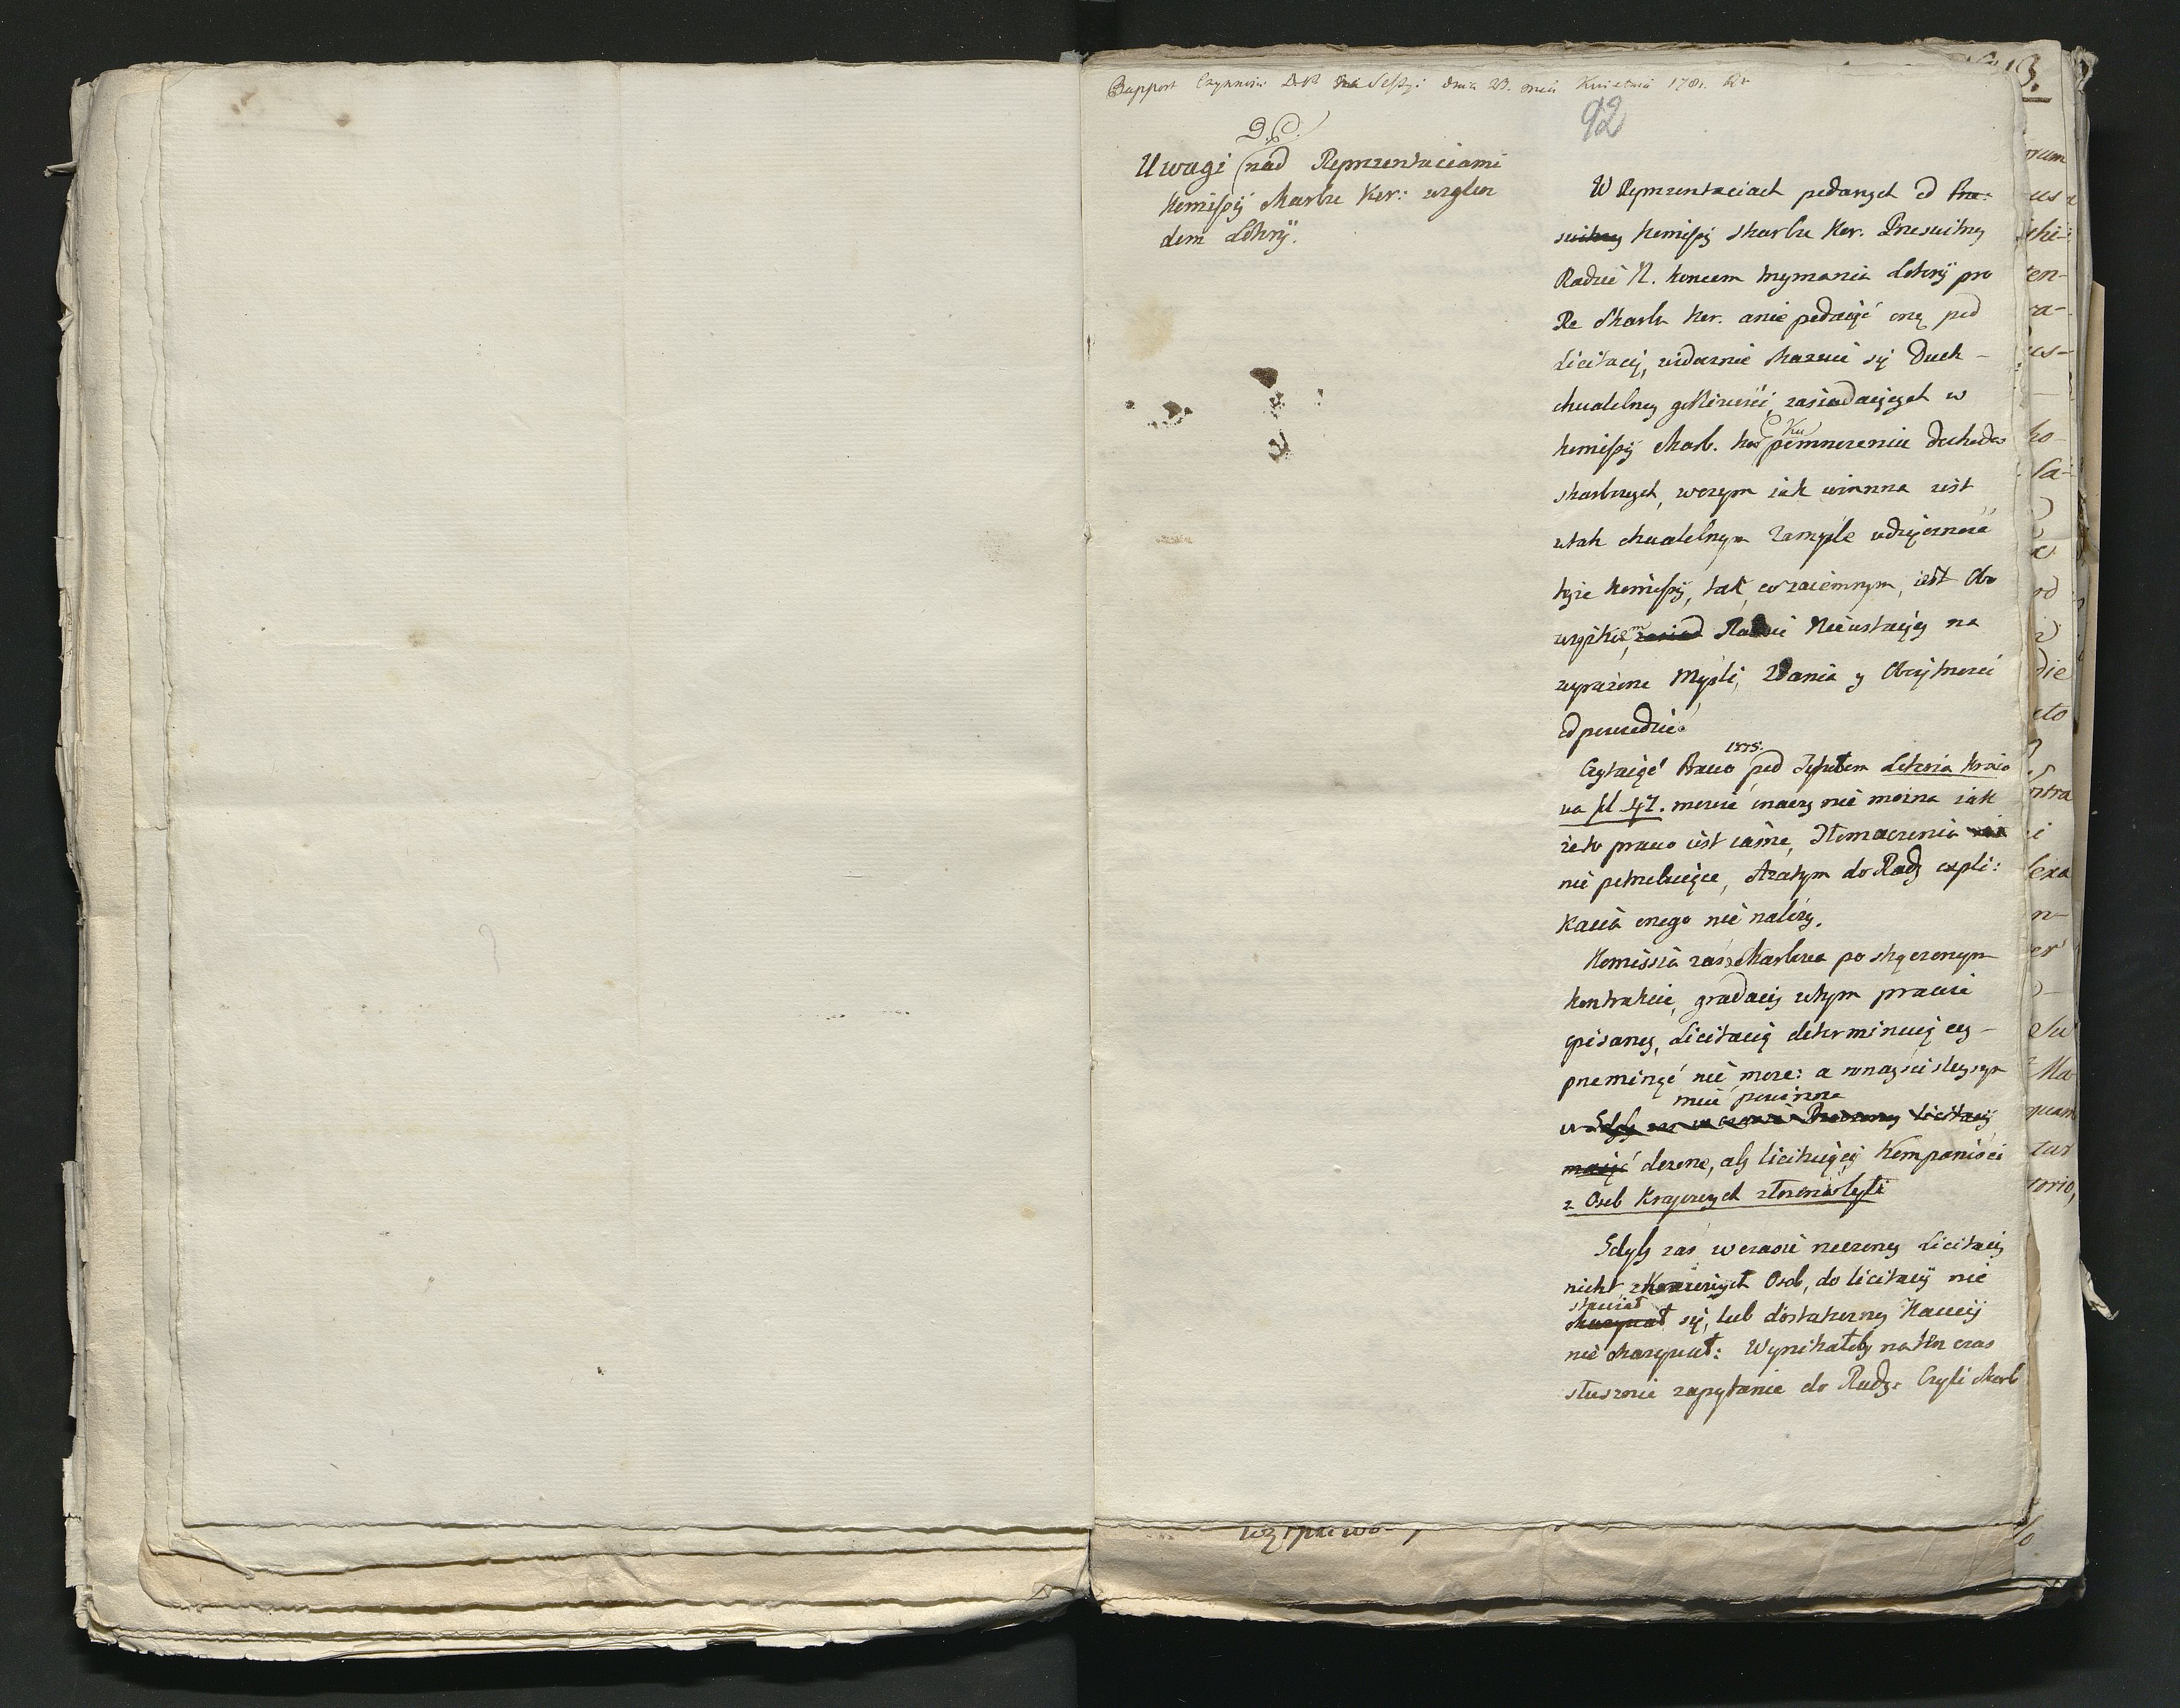 Rapport Czynności D. S. na Sessyi dnia 23. mca Kwietnia 1781. R.
92
D. S.
Uwagi nad Reprezentaciami
Komissyi Skarbu Kor: wzglen
dem Loteryi.
W Reprezentaciach podanych od Prze:
swietney Komissyi skarbu Kor. Przeswitney
Radzie N. koncem trzymania Loteryi pro
Re Skarbu Kor. a nie podaiąć oney pod
Licitacyi, widocznie okazuie się Duch
chwalebney gorliwości, zasiadaiących w
Komissyi Skarb. Kor ku pomnozeniu dochodow
skarbowych, w czym iak winna iest
w tak chwalebnym zamysle wdzięczność
teyże Komissyi, tak wzaiemnym, iest Obo
wiązkiem Radzie Nieustaiącey na
wyrażone Myśli, Zdania y Obiętności
odpowiedzieć
Czytaiąć Prawo 1775. pod Tytułem Loteria kraio
wa fol 47. mowić inaczey nie można iak
że to prawo iest iasne, tłomaczenia
nie potrzebuiące, a zatym do Rady expli:
kacia onego nie należy.
Komissia zaś skarbowa po skączonym
kontrakcie, gradacyi w tym prawie
opisaney, Licitacią determinuiącey
pominąć nie może: a w nayscisleyszym
mieć powinna
w Gdyby zas w czasie licitacyi
maiąć dozorze, aby licituiącey Kompanistei
z Osob Kraiowych złożeni byli
Gdyby zaś w czasie rzeczoney Licitacyi
nicht z Kraiowych Osob, do licitacyi nie
stawiał
okazywał się, lub dostateczney Kaucyi
nie okazywał: Wynikałoby na ten czas
słusznie zapytanie do Rady: Czyli Skarb